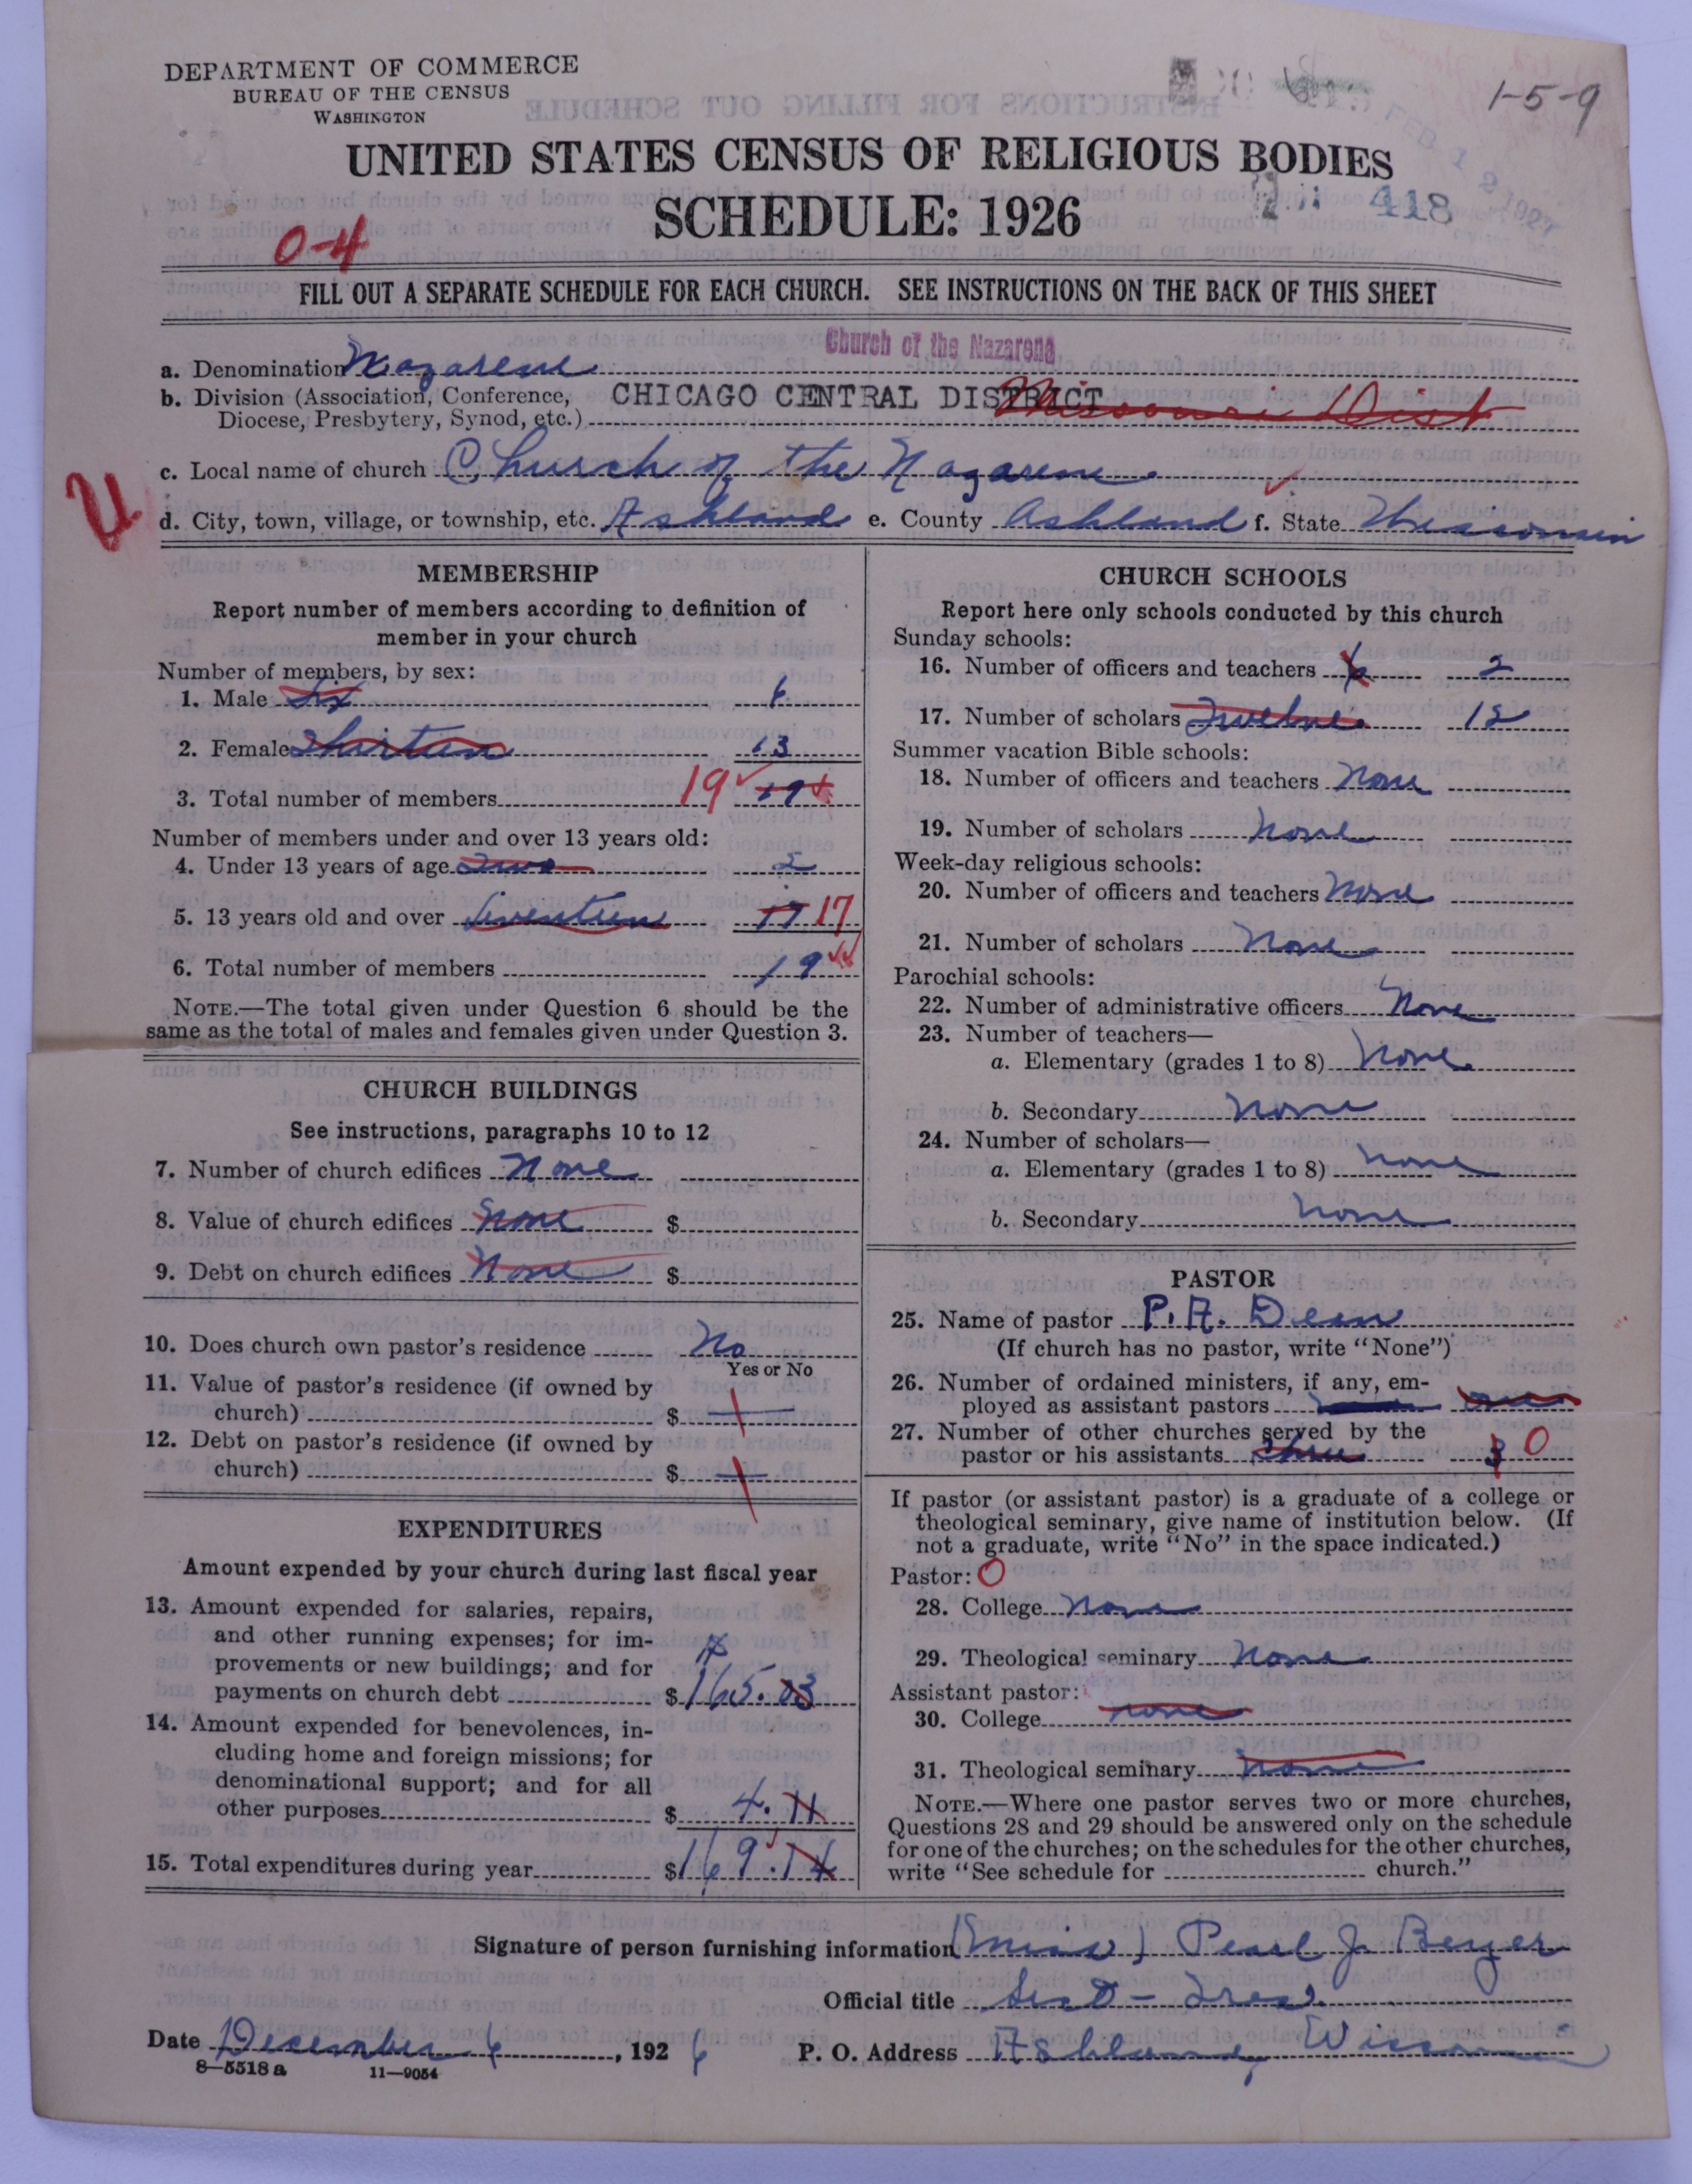 DEPARTMENT OF COMMERCE
BUREAU OF THE CENSUS
WASHINGTON
1-5-9
UNITED STATES CENSUS OF RELIGIOUS BODIES
SCHEDULE: 1926
418
FEB 12 1927
0-4
FILL OUT A SEPARATE SCHEDULE FOR EACH CHURCH. SEE INSTRUCTIONS ON THE BACK OF THIS SHEET
Church of the Nazarene
a. Denomination Nazarene
b. Division (Association, Conference, CHICAGO CENTRAL DISTRICT Missouri Dist
Diocese, Presbytery, Synod, etc.)
c. Local name of church Church of the Nazarene
U
d. City, town, village, or township, etc. Ashland e. County Ashland f. State Wisconsin
MEMBERSHIP
Report number of members according to definition of
member in your church
Number of members, by sex:
1. Male Six 6
2. Female Thirteen 13
3. Total number of members 19 19
Number of members under and over 13 years old:
4. Under 13 years of age Two 2
5. 13 years old and over Seventeen 17 17
6. Total number of members 19
NOTE.—The total given under Question 6 should be the
same as the total of males and females given under Question 3.
CHURCH BUILDINGS
See instructions, paragraphs 10 to 12
7. Number of church edifices None
8. Value of church edifices None $
9. Debt on church edifices None $
10. Does church own pastor's residence No
Yes or No
11. Value of pastor's residence (if owned by
church) $
12. Debt on pastor's residence (if owned by
church) $
EXPENDITURES
Amount expended by your church during last fiscal year
13. Amount expended for salaries, repairs,
and other running expenses; for im-
provements or new buildings; and for
payments on church debt $165.03
14. Amount expended for benevolences, in-
cluding home and foreign missions; for
denominational support; and for all
other purposes $ 4.11
15. Total expenditures during year $169.14
CHURCH SCHOOLS
Report here only schools conducted by this church
Sunday schools:
16. Number of officers and teachers 6 2
17. Number of scholars Twelve 12
Summer vacation Bible schools:
18. Number of officers and teachers None
19. Number of scholars None
Week-day religious schools:
20. Number of officers and teachers None
21. Number of scholars None
Parochial schools:
22. Number of administrative officers None
23. Number of teachers—
a. Elementary (grades 1 to 8) None
b. Secondary None
24. Number of scholars—
a. Elementary (grades 1 to 8) None
b. Secondary None
PASTOR
25. Name of pastor P. A. Dean
(If church has no pastor, write "None")
26. Number of ordained ministers, if any, em-
ployed as assistant pastors
27. Number of other churches served by the
pastor or his assistants Three 3 0
If pastor (or assistant pastor) is a graduate of a college or
theological seminary, give name of institution below. (If
not a graduate, write "No" in the space indicated.)
Pastor: O
28. College None
29. Theological seminary None
Assistant pastor:
30. College None
31. Theological seminary None
NOTE.—Where one pastor serves two or more churches,
Questions 28 and 29 should be answered only on the schedule
for one of the churches; on the schedules for the other churches,
write "See schedule for church."
Signature of person furnishing information (Miss) Pearl J. Beyer
Official title Sect - Treas.
Date December 6, 1926 P. O. Address Ashland, Wisconsin
8—5518 a 11—9054